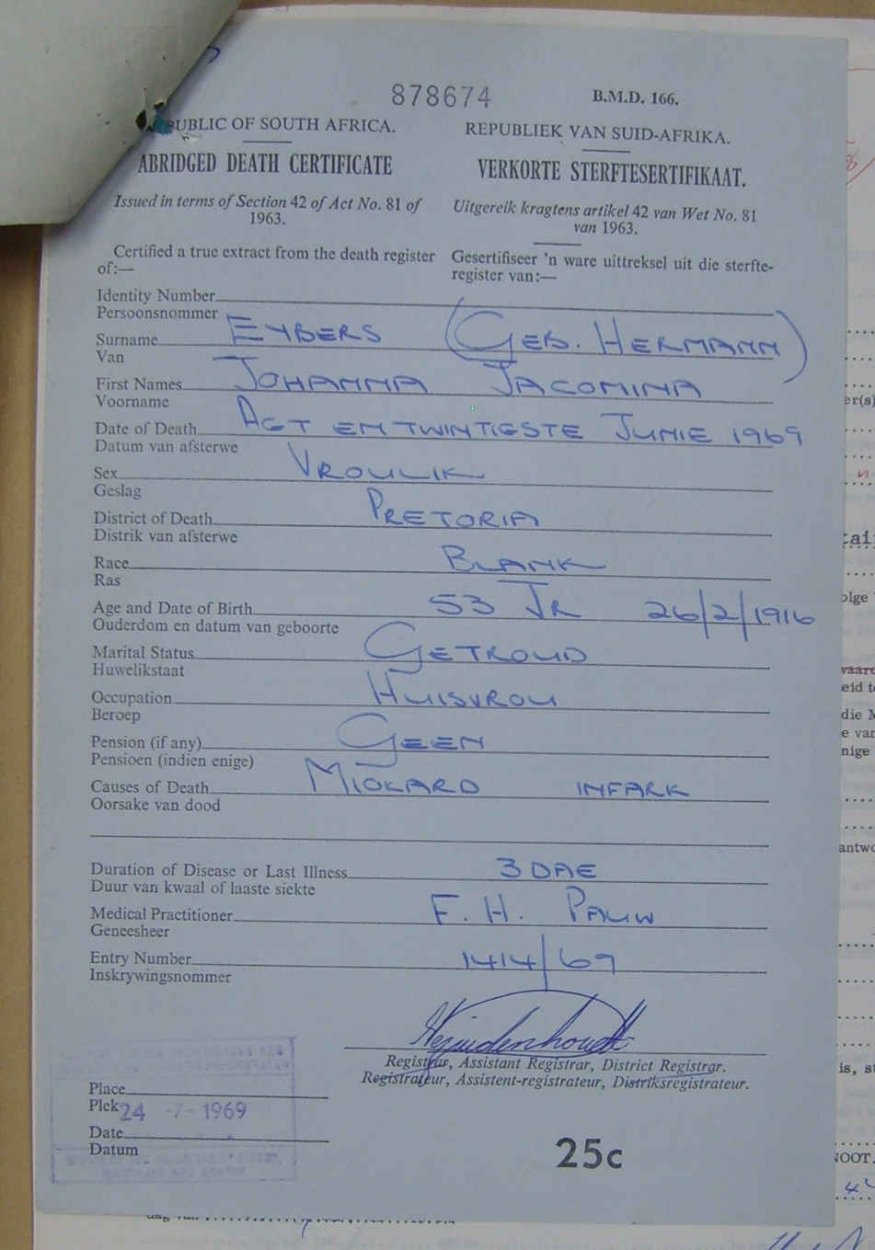 878674
B.M.D. 166.
PUBLIC OF SOUTH AFRICA.
ABRIDGED DEATH CERTIFICATE
Issued in terms of Section 42 of Act No. 81 of
1963.
REPUBLIEK VAN SUID-AFRIKA.
VERKORTE STERFTESERTIFIKAAT.
Uitgereik kragtens artikel 42 van Wet No. 81
van 1963.
Certified a true extract from the death register
of:—
Gesertifiseer 'n ware uittreksel uit die sterfte-
register van:—
Identity Number
Persoonsnommer
Surname EYBERS (GEB. HERMANN)
Van
First Names JOHANNA JACOMINA
Voorname
Date of Death AGT EN TWINTIGSTE JUNIE 1969
Datum van afsterwe
Sex VROULIK
Geslag
District of Death PRETORIA
Distrik van afsterwe
Race BLANK
Ras
Age and Date of Birth 53 JR 26/2/1916
Ouderdom en datum van geboorte
Marital Status GETROUD
Huwelikstaat
Occupation HUISVROU
Beroep
Pension (if any) GEEN
Pensioen (indien enige)
Causes of Death MIOKARD INFARK
Oorsake van dood
Duration of Disease or Last Illness 3 DAE
Duur van kwaal of laaste siekte
Medical Practitioner F. H. PAUW
Geneesheer
Entry Number 1414/69
Inskrywingsnommer
Registrar, Assistant Registrar, District Registrar.
Registrateur, Assistent-registrateur, Distriksregistrateur.
Place
Plek
24 -7- 1969
Date
Datum
25c